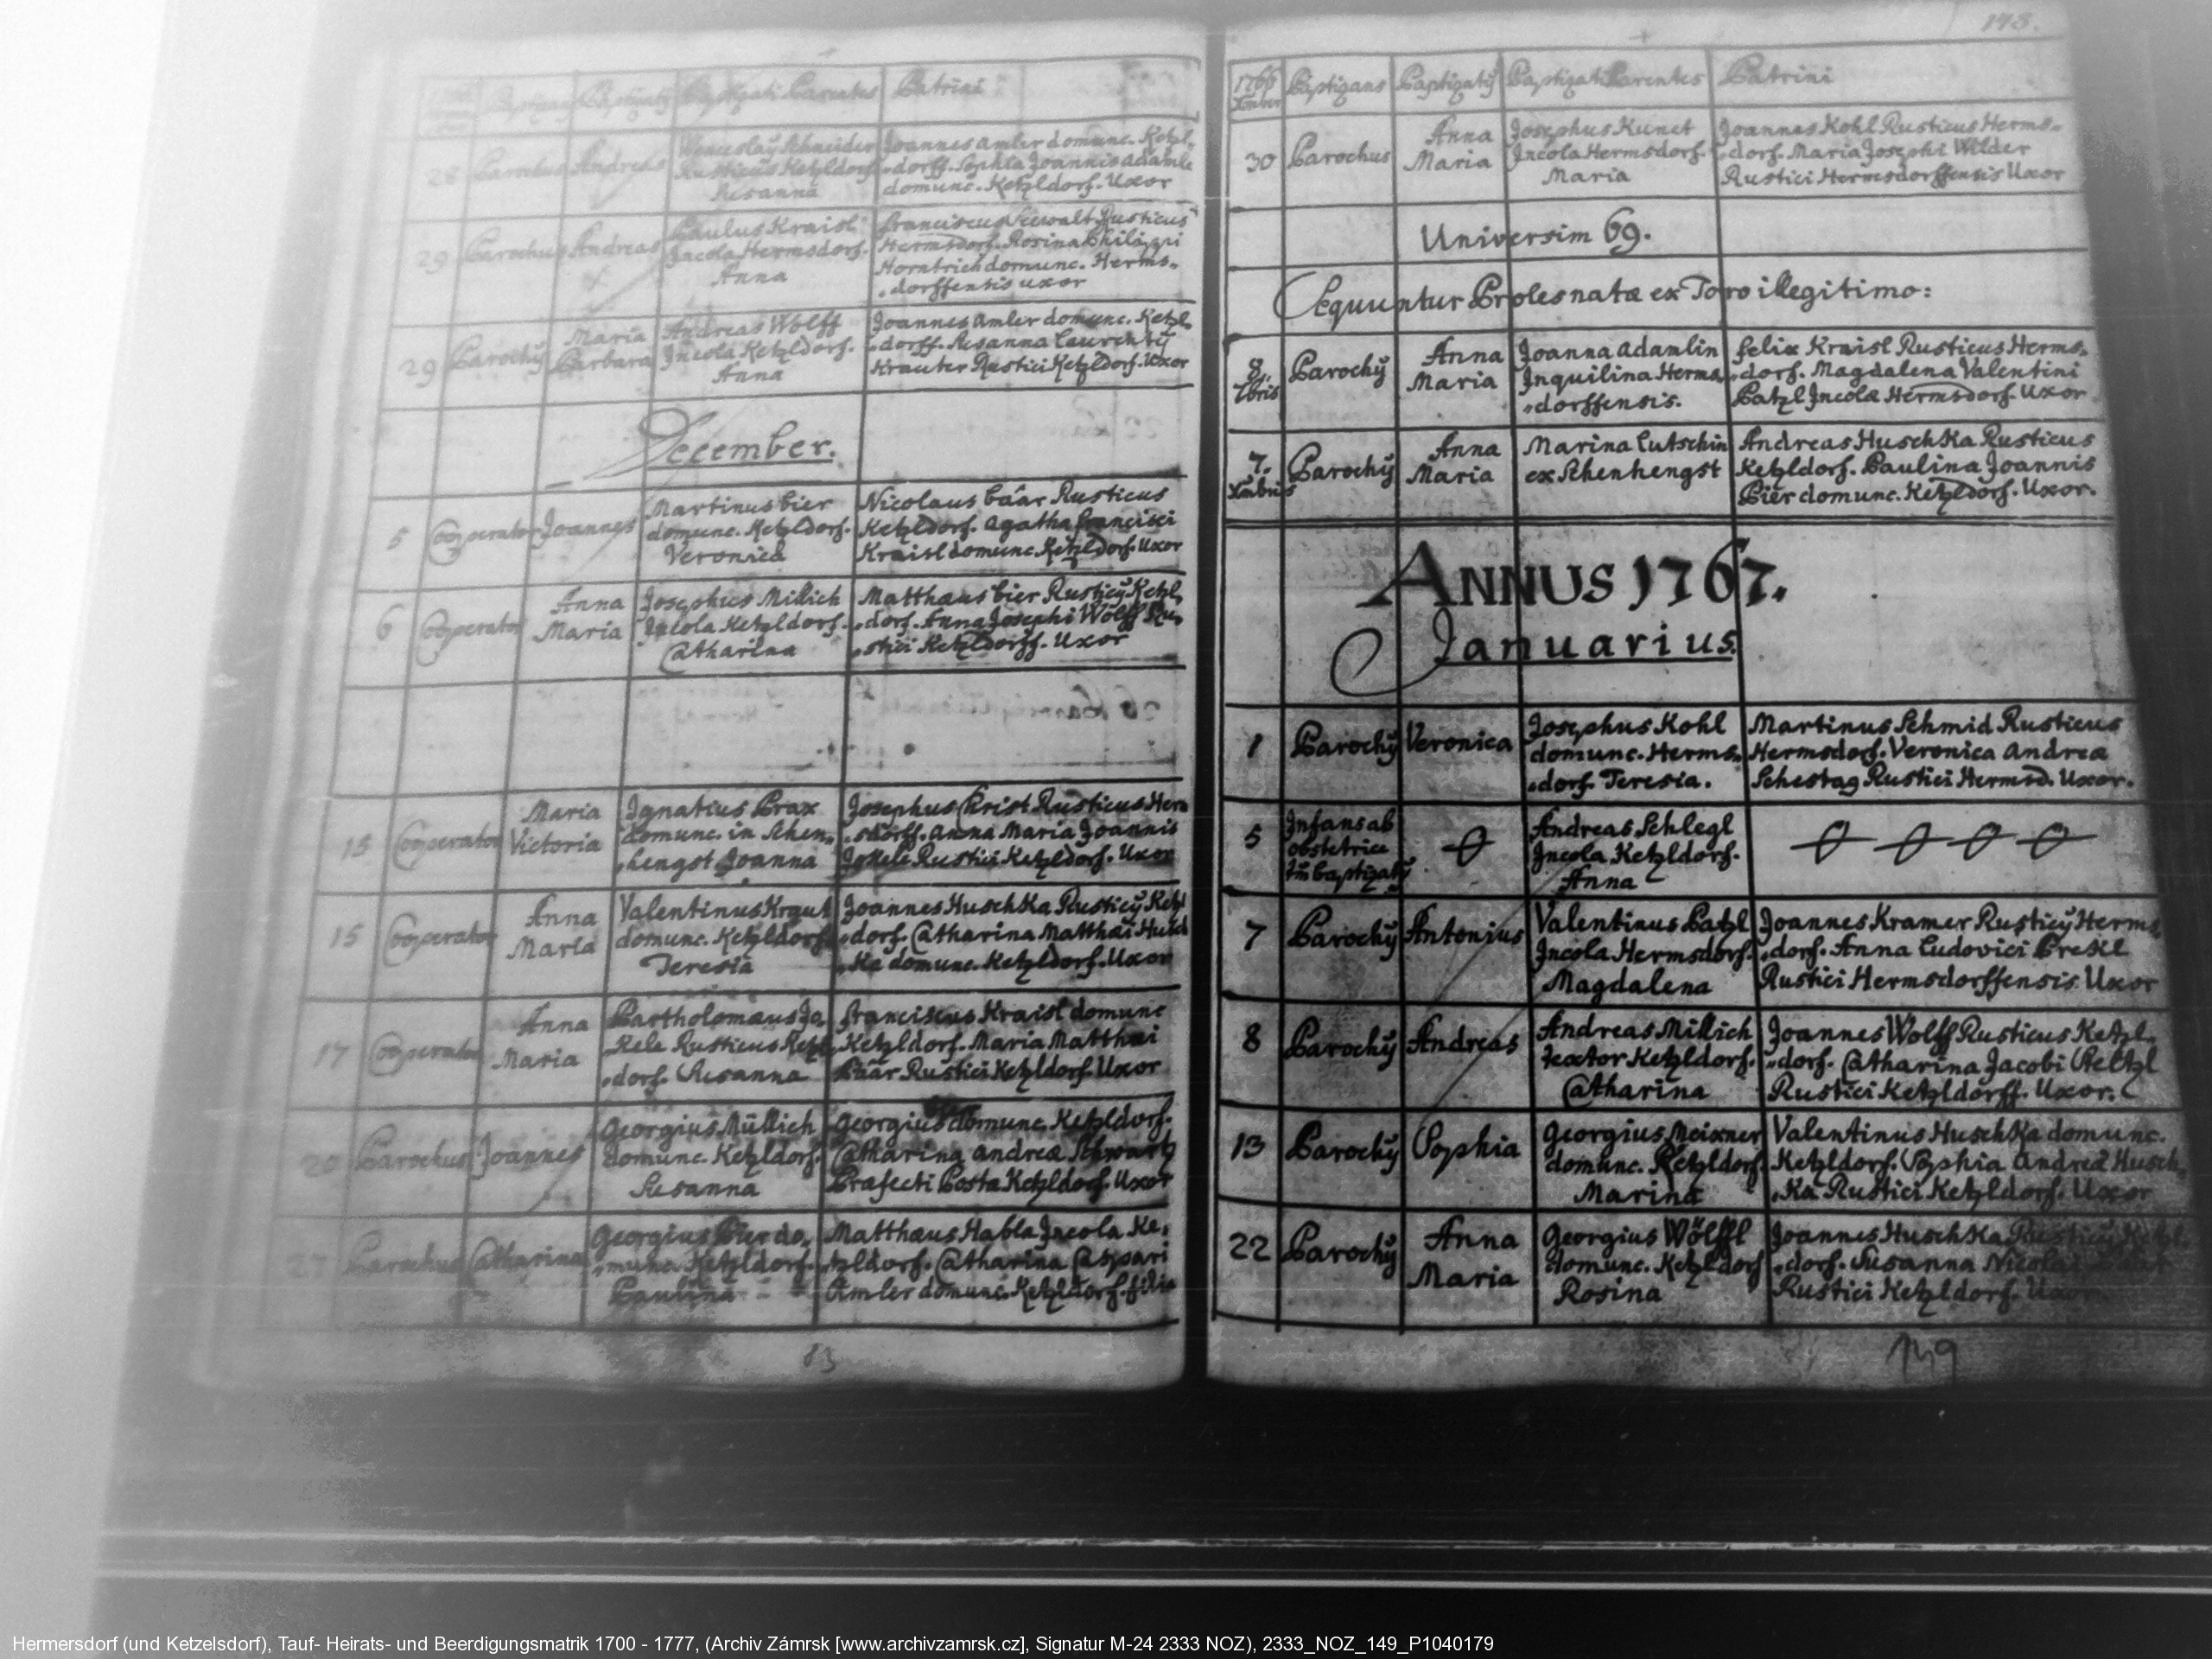 Baptizans Baptizatq Baptizati Parentes Patrini
28 Parochus Andreas Wenceslaq Schneider Rusticus Ketzldorf. Susanna
Joannes Amler domunc. Ketzl-
dorff. Sophia Joannis Adamle
domunc. Ketzldorf. Uxor
29 Parochus Andreas Paulus Kraisl
Incola Hermsdorf.
Anna
Franciscus Seewalt Rusticus
Hermsdorf. Rosina Philippi
Horntrich domunc. Herms-
dorffensis uxor
29 Parochq Maria Barbara Andreas Wolff
Incola Ketzldorf.
Anna
Joannes Amler domunc. Ketzl-
dorff. Susanna Laurentq
Krauter Rustici Ketzldorf. Uxor
December.
5 Cooperator Joannes Martinus Bier
domunc. Ketzldorf.
Veronica
Nicolaus Baar Rusticus
Ketzldorf. Agatha Francisci
Kraisl domunc. Ketzldorf. Uxor
6 Cooperator Anna Maria Josephus Millich
Incola Ketzldorf.
Catharina
Matthæus Bier Rusticq Ketzl-
dorf. Anna Josephi Wolff Ru-
stici Ketzldorff. Uxor
15 Cooperator Maria Victoria Ignatius Prax
domunc. in Schen-
hengst Joanna
Josephus Christ Rusticus Herm
sdorff. Anna Maria Joannis
Jokele Rustici Ketzldorf. Uxor
15 Cooperator Anna Maria Valentinus Kraut
domunc. Ketzldorf.
Teresia
Joannes Huschka Rusticq Ketzl
dorf. Catharina Matthæi Husch
ka domunc. Ketzldorf. Uxor
17 Cooperator Anna Maria Bartholomæus Jo-
kele Rusticus Ketzl-
dorf. Susanna
Franciscus Kraisl domunc
Ketzldorf. Maria Matthæi
Bäar Rustici Ketzldorf. Uxor
20 Parochus Joannes Georgius Müllich
domunc. Ketzldorf.
Susanna
Georgius domunc. Ketzldorf.
Catharina Andreæ Schwartz
Præfecti Posta Ketzldorf. Uxor
27 Parochus Catharina Georgius Bier do-
munc. Ketzldorf.
Paulina
Matthæus Habla Incola Ke-
tzldorf. Catharina Caspari
Amler domunc. Ketzldorf. filia
83
148.
1766 Xmber Baptizans Baptizatq Baptizati Parentes Patrini
30 Parochus Anna Maria Josephus Kunet
Incola Hermsdorf.
Maria
Joannes Kohl Rusticus Herms-
dorf. Maria Josephi Wilder
Rustici Hermsdorffensis Uxor
Universim 69.
Sequuntur Proles natæ ex Toro illegitimo:
8. 7bris Parochq Anna Maria Joanna Adamlin
Inquilina Herms-
dorffensis.
Felix Kraisl Rusticus Herms-
dorf. Magdalena Valentini
Patzl Incolæ Hermsdorf. Uxor
7. Xmbris Parochq Anna Maria Marina Lutschin
ex Schenhengst
Andreas Huschka Rusticus
Ketzldorf. Paulina Joannis
Bier domunc. Ketzldorf. Uxor.
ANNUS 1767.
Januarius.
1 Parochq Veronica Josephus Kohl
domunc. Herms-
dorf. Teresia.
Martinus Schmid Rusticus
Hermsdorf. Veronica Andreæ
Schestag Rustici Hermsd. Uxor.
5 Infans ab obstetrice baptizatq Andreas Schlegl
Incola Ketzldorf.
Anna
7 Parochq Antonius Valentinus Patzl
Incola Hermsdorf.
Magdalena
Joannes Kramer Rusticq Herms
dorf. Anna Ludovici Prekl
Rustici Hermsdorffensis Uxor
8 Parochq Andreas Andreas Millich
textor Ketzldorf.
Catharina
Joannes Wolff Rusticus Ketzl-
dorf. Catharina Jacobi Peltzl
Rustici Ketzldorff. Uxor.
13 Parochq Sophia Georgius Meixner
domunc. Ketzldorf
Marina
Valentinus Huschka domunc.
Ketzldorf. Sophia Andreæ Husch-
ka Rustici Ketzldorf. Uxor
22 Parochq Anna Maria Georgius Wölffl
domunc. Ketzldorf
Rosina
Joannes Huschka Rusticq Ketzl
dorf. Susanna Nicolai
Rustici Ketzldorf. Uxor
149
Hermersdorf (und Ketzelsdorf), Tauf- Heirats- und Beerdigungsmatrik 1700 - 1777, (Archiv Zámrsk [www.archivzamrsk.cz], Signatur M-24 2333 NOZ), 2333_NOZ_149_P1040179